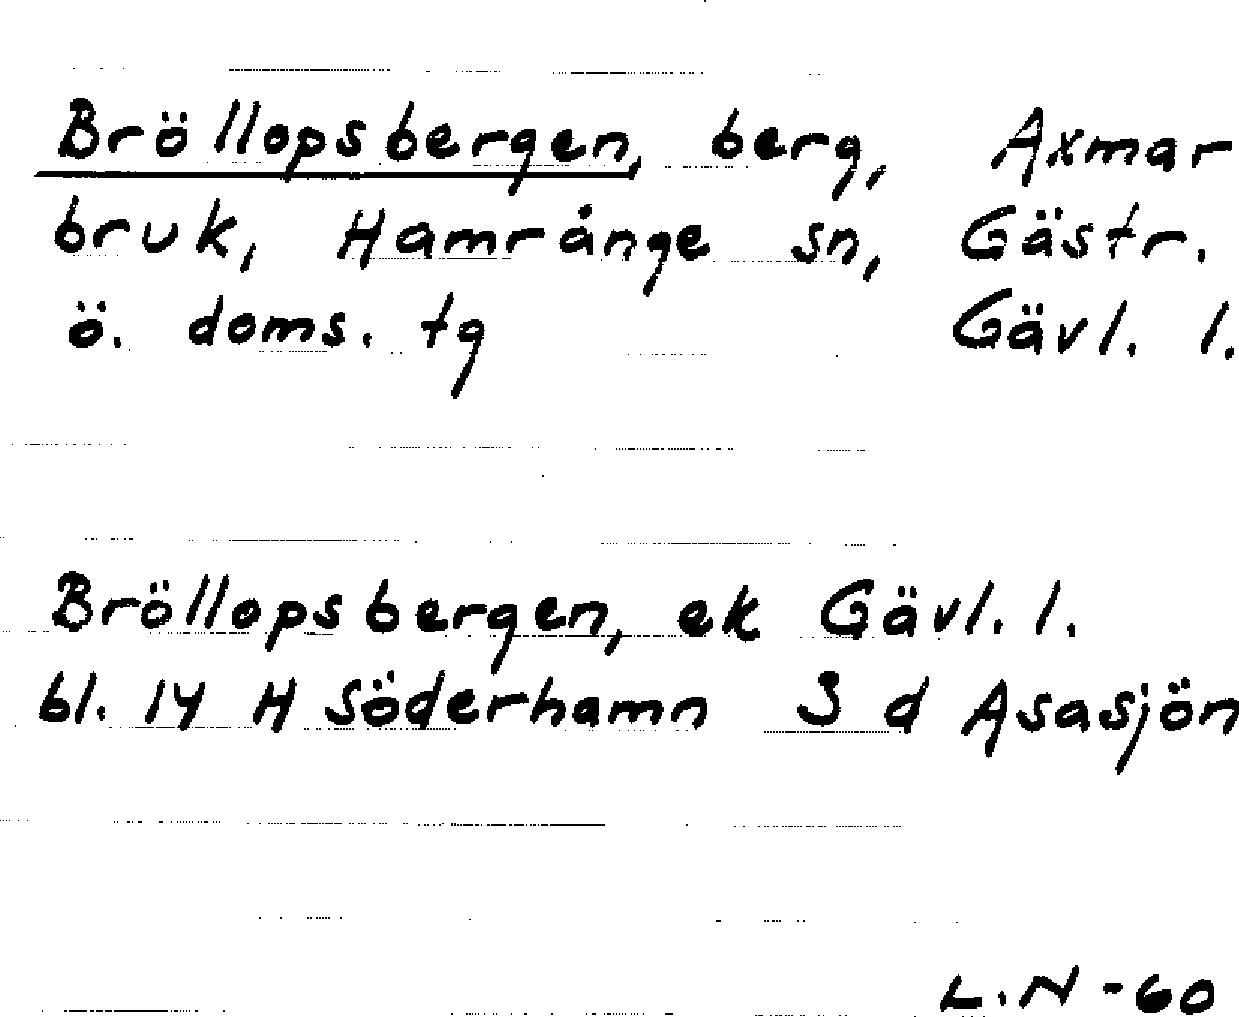 Bröllopsbergen, berg, Axmar
bruk, Hamrånge sn, Gästr.
ö. doms. tg Gävl. l.
Bröllopsbergen, ek Gävl. l.
bl. 14 H Söderhamn 3 d Asasjön
L.N -60